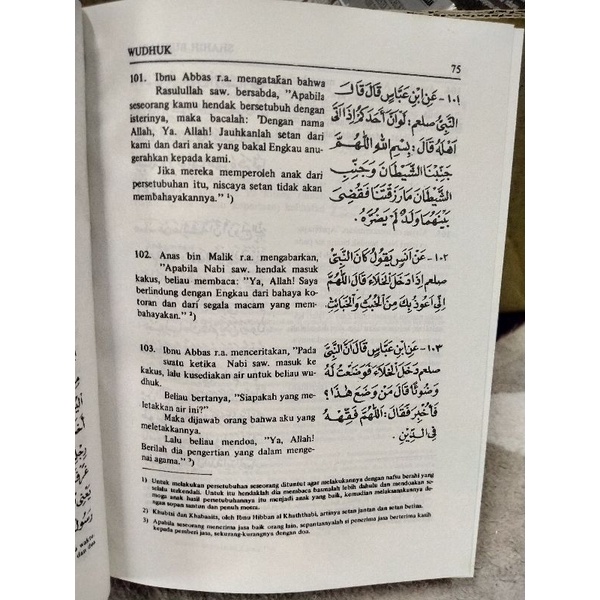 WUDHUK
75
101. Ibnu Abbas r.a. mengatakan bahwa
Rasulullah saw. bersabda, "Apabila
seseorang kamu hendak bersetubuh dengan
isterinya, maka bacalah: 'Dengan nama
Allah, Ya. Allah! Jauhkanlah setan dari
kami dan dari anak yang bakal Engkau anu-
gerahkan kepada kami.
Jika mereka memperoleh anak dari
persetubuhan itu, niscaya setan tidak akan
membahayakannya." ¹)
١٠١- عَنِ ابْنِ عَبَّاسٍ قَالَ قَالَ
النَّبِيُّ صلعم: لَوْ أَنَّ أَحَدَكُمْ إِذَا أَتَى
أَهْلَهُ قَالَ: بِسْمِ اللهِ اَللّٰهُمَّ
جَنِّبْنَا الشَّيْطَانَ وَجَنِّبِ
الشَّيْطَانَ مَا رَزَقْتَنَا فَقُضِيَ
بَيْنَهُمَا وَلَدٌ لَمْ يَضُرَّهُ.
102. Anas bin Malik r.a. mengabarkan,
"Apabila Nabi saw. hendak masuk
kakus, beliau membaca: "Ya, Allah! Saya
berlindung dengan Engkau dari bahaya ko-
toran dan dari segala macam yang mem-
bahayakan." ²)
١٠٢- عَنْ أَنَسٍ يَقُولُ كَانَ النَّبِيُّ
صلعم إِذَا دَخَلَ الْخَلَاءَ قَالَ اَللّٰهُمَّ
إِنِّي أَعُوذُ بِكَ مِنَ الْخُبُثِ وَالْخَبَائِثِ
103. Ibnu Abbas r.a. menceritakan, "Pada
suatu ketika Nabi saw. masuk ke
kakus, lalu kusediakan air untuk beliau wu-
dhuk.
Beliau bertanya, "Siapakah yang me-
letakkan air ini?"
Maka dijawab orang bahwa aku yang
meletakkannya.
Lalu beliau mendoa, "Ya, Allah!
Berilah dia pengertian yang dalam menge-
nai agama." ³)
١٠٣- عَنِ ابْنِ عَبَّاسٍ قَالَ أَنَّ النَّبِيَّ
صلعم دَخَلَ الْخَلَاءَ فَوَضَعْتُ لَهُ
وَضُوْءًا قَالَ مَنْ وَضَعَ هٰذَا؟
فَأُخْبِرَ فَقَالَ: اَللّٰهُمَّ فَقِّهْهُ
فِي الدِّيْنِ.
1) Untuk melakukan persetubuhan seseorang dituntut agar melakukannya dengan nafsu berahi yang
selalu terkendali. Untuk itu hendaklah dia membaca basmalah lebih dahulu dan mendoakan se-
moga anak hasil persetubuhannya itu menjadi anak yang baik, kemudian melaksanakannya de-
ngan sopan santun dan penuh mesra.
2) Khubtsi dan Khabaaits, oleh Ibnu Hibban al Khaththabi, artinya setan jantan dan setan betina.
3) Apabila seseorang menerima jasa baik orang lain, sepantasnyalah si penerima jasa berterima kasih
kepada pemberi jasa, sekurang-kurangnya dengan doa.